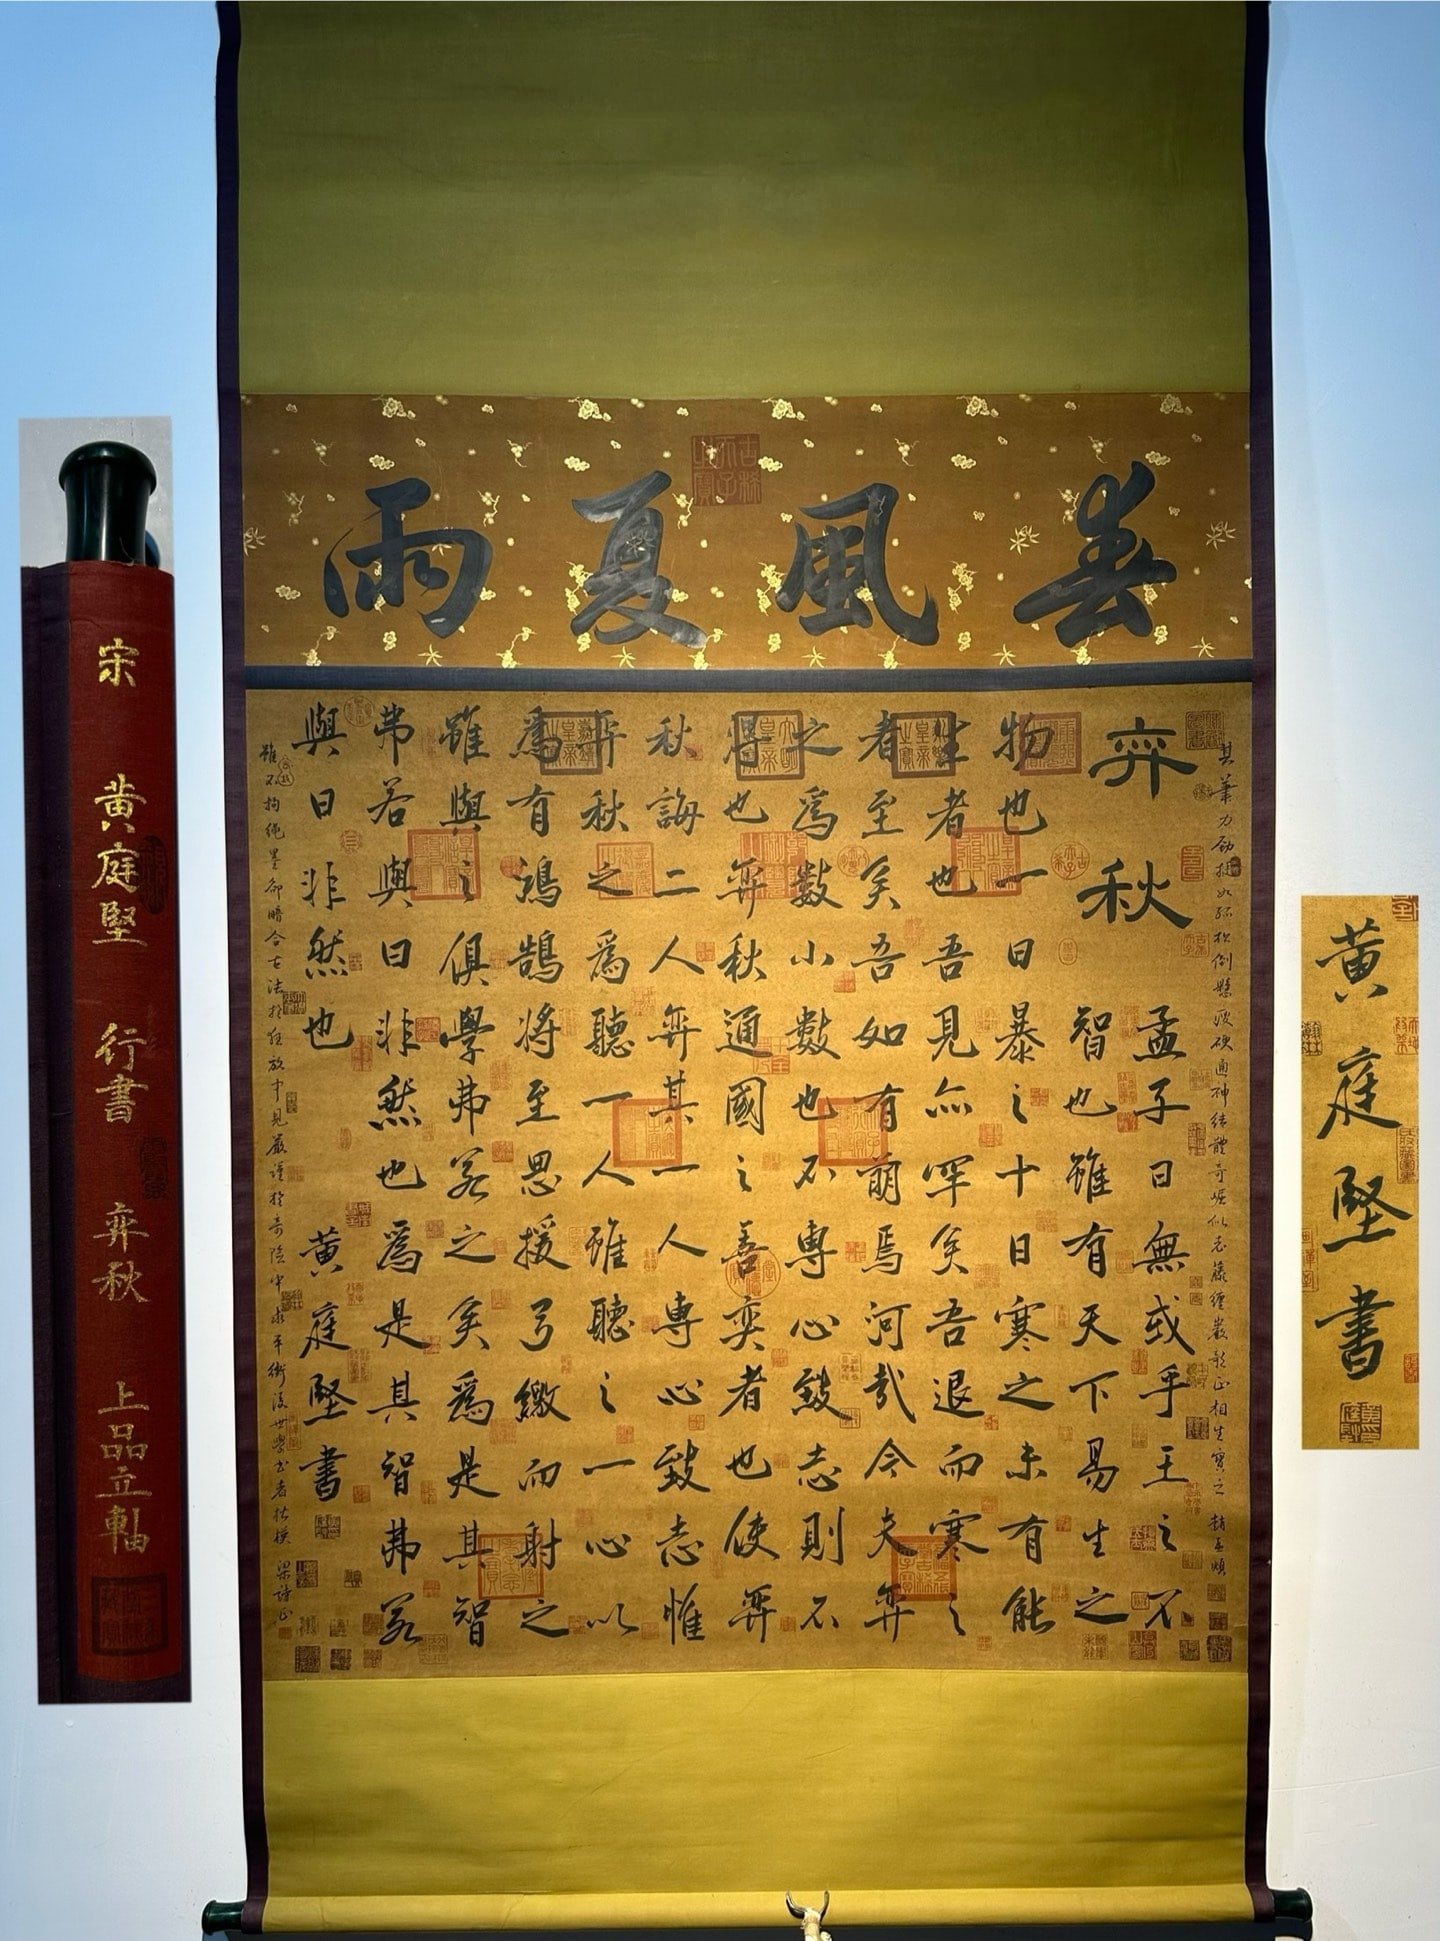 宋 黄庭堅 行書 弈秋 上品立軸
春風夏雨
其筆力勁挺如孤松倒懸瘦硬通神結體奇崛似老藤纏巖欹正相生實之 趙孟頫
弈秋
孟子曰無或乎王之不
智也雖有天下易生之
物也一日暴之十日寒之未有能
生者也吾見亦罕矣吾退而寒之
者至矣吾如有萌焉何哉今夫弈
之爲數小數也不專心致志則不
得也弈秋通國之善奕者也使弈
秋誨二人弈其一人專心致志惟
弈秋之爲聽一人雖聽之一心以
爲有鴻鵠將至思援弓繳而射之
雖與之俱學弗若之矣爲是其智
弗若與曰非然也爲是其智弗若
與曰非然也 黄庭堅書
雖不拘繩墨卻暗合古法於狂放中見嚴謹於奇險中求平衡後世學書者楷模 梁詩正
黄庭堅書